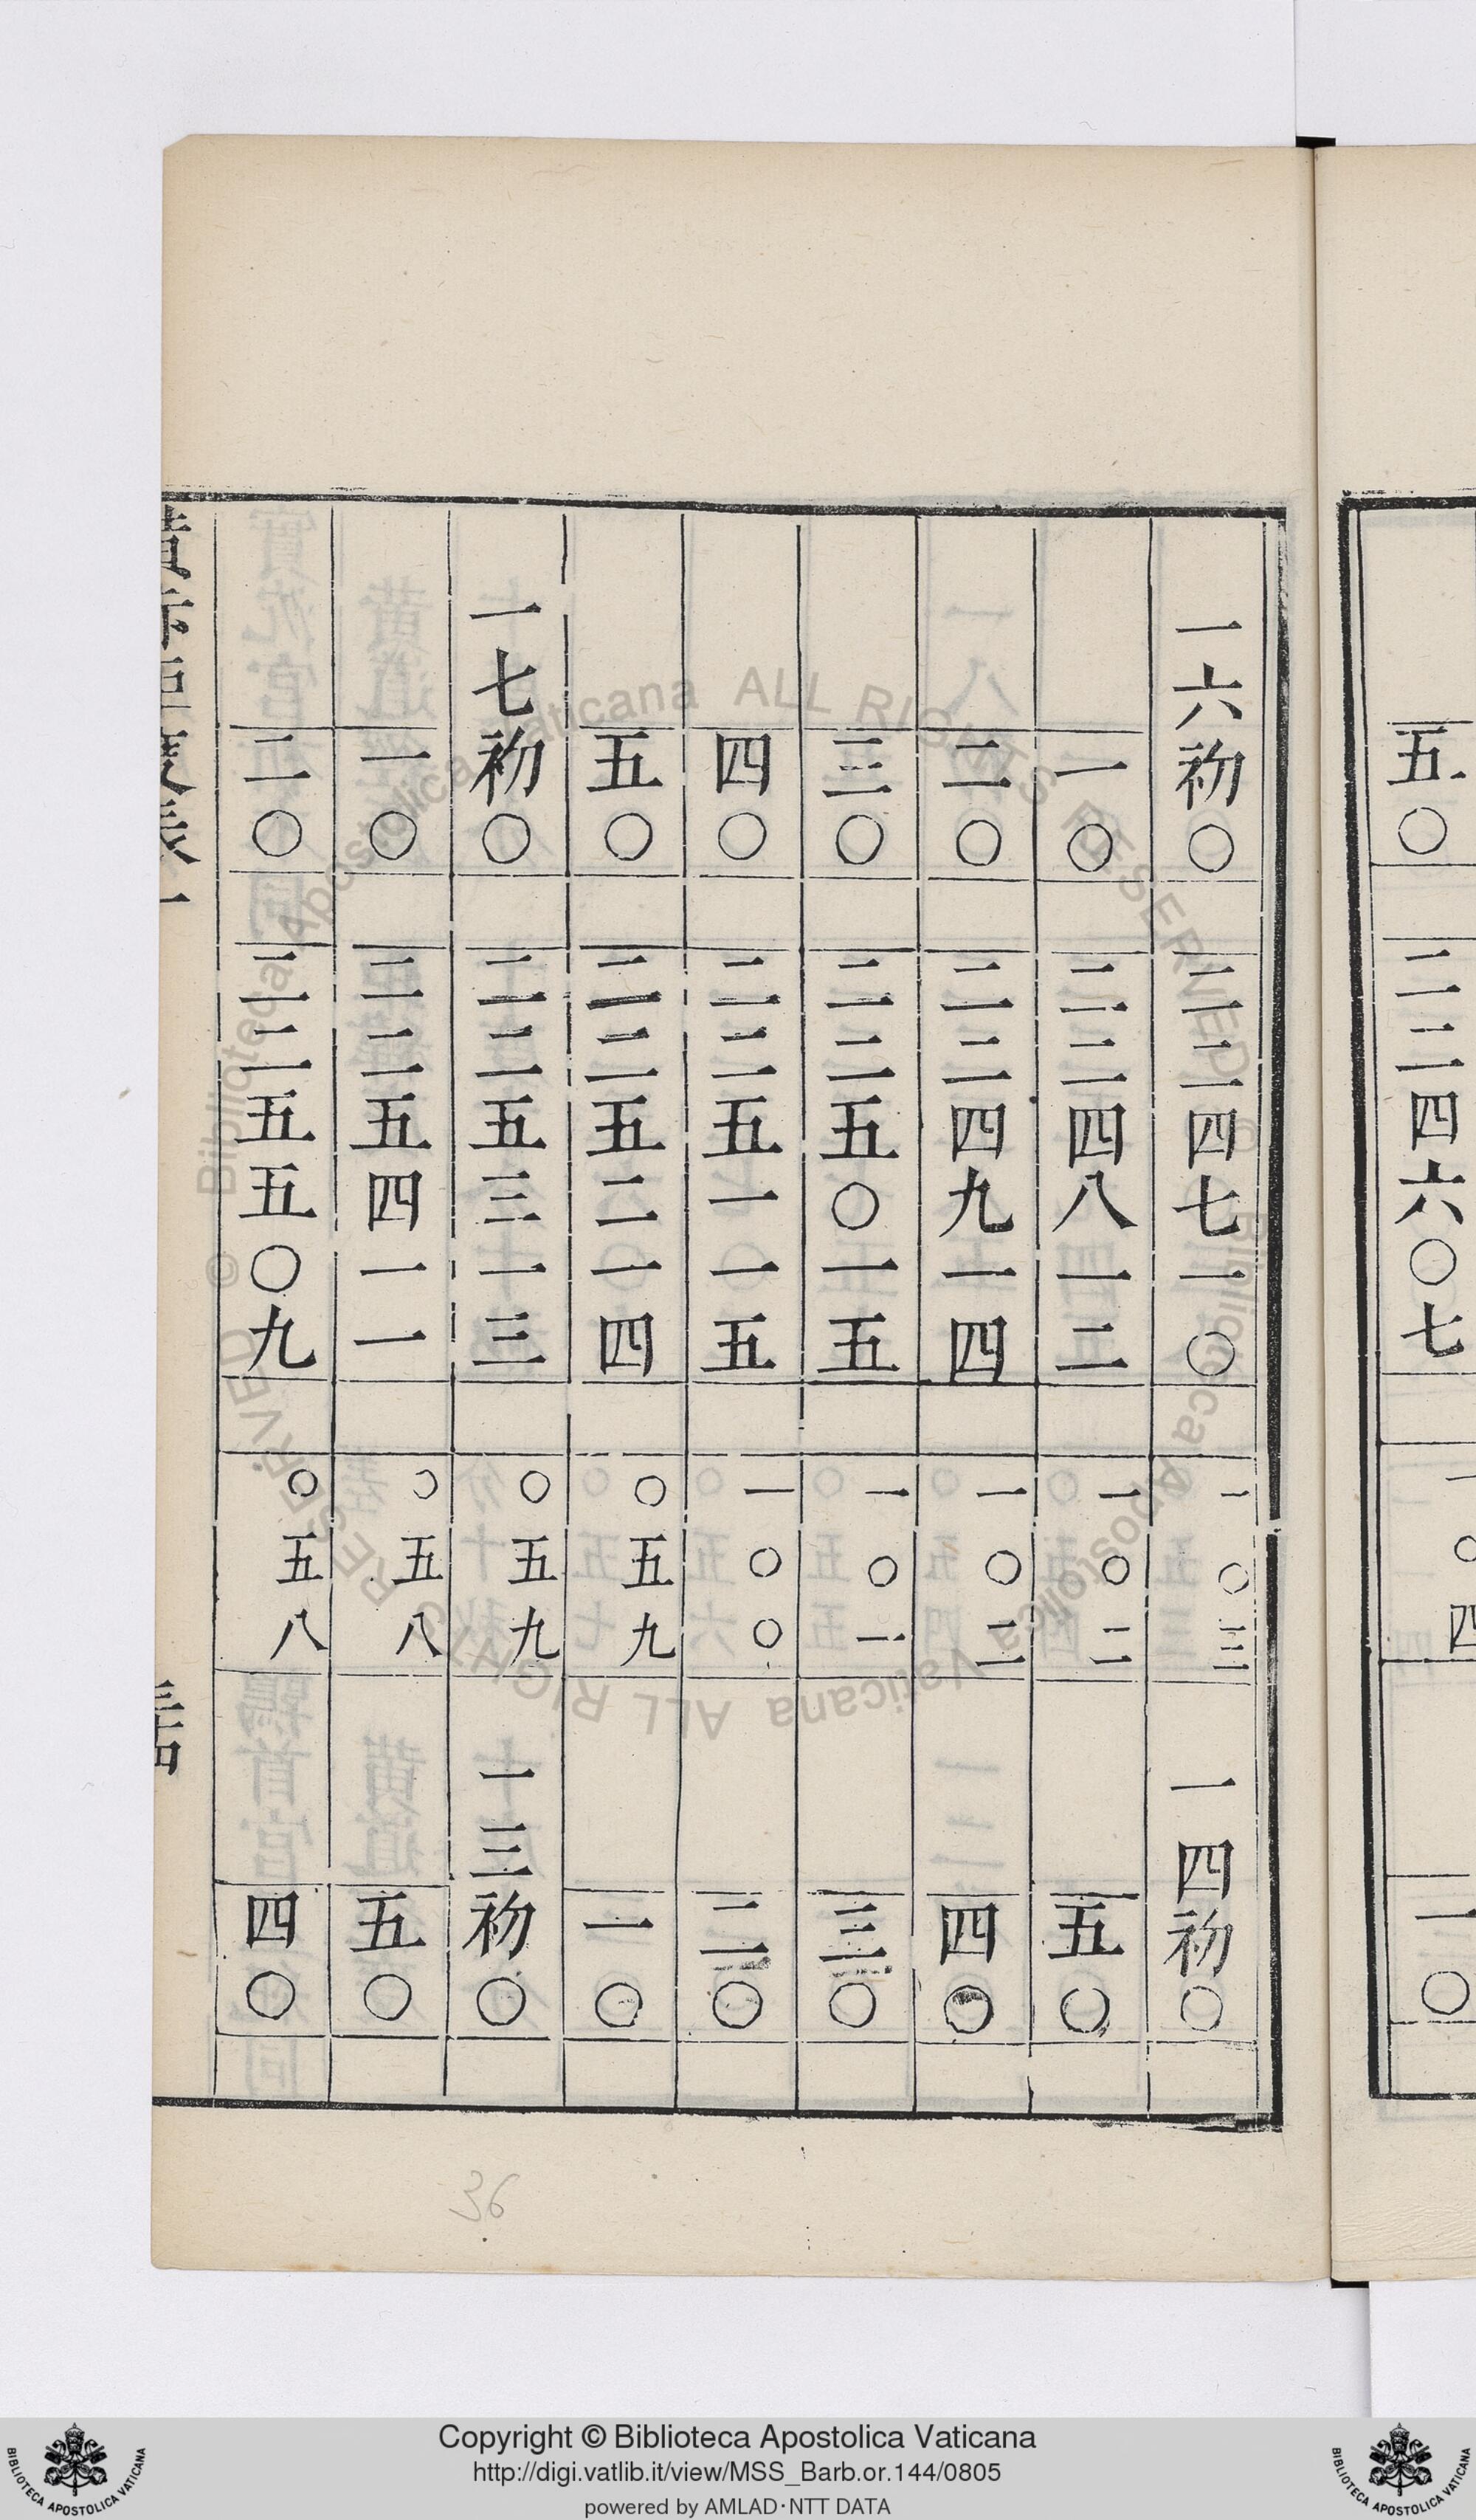 一六初〇 二二四七一〇 一〇三 一四初〇
一〇 二二四八一二 一〇二 五〇
二〇 二二四九一四 一〇二 四〇
三〇 二二五〇一五 一〇一 三〇
四〇 二二五一一五 一〇〇 二〇
五〇 二二五二一四 〇五九 一〇
一七初〇 二二五三一三 〇五九 一三初〇
一〇 二二五四一一 〇五八 五〇
二〇 二二五五〇九 〇五八 四〇
五〇 二二四六〇七 一〇四 一〇
36
Copyright © Biblioteca Apostolica Vaticana
http://digi.vatlib.it/view/MSS_Barb.or.144/0805
powered by AMLAD·NTT DATA